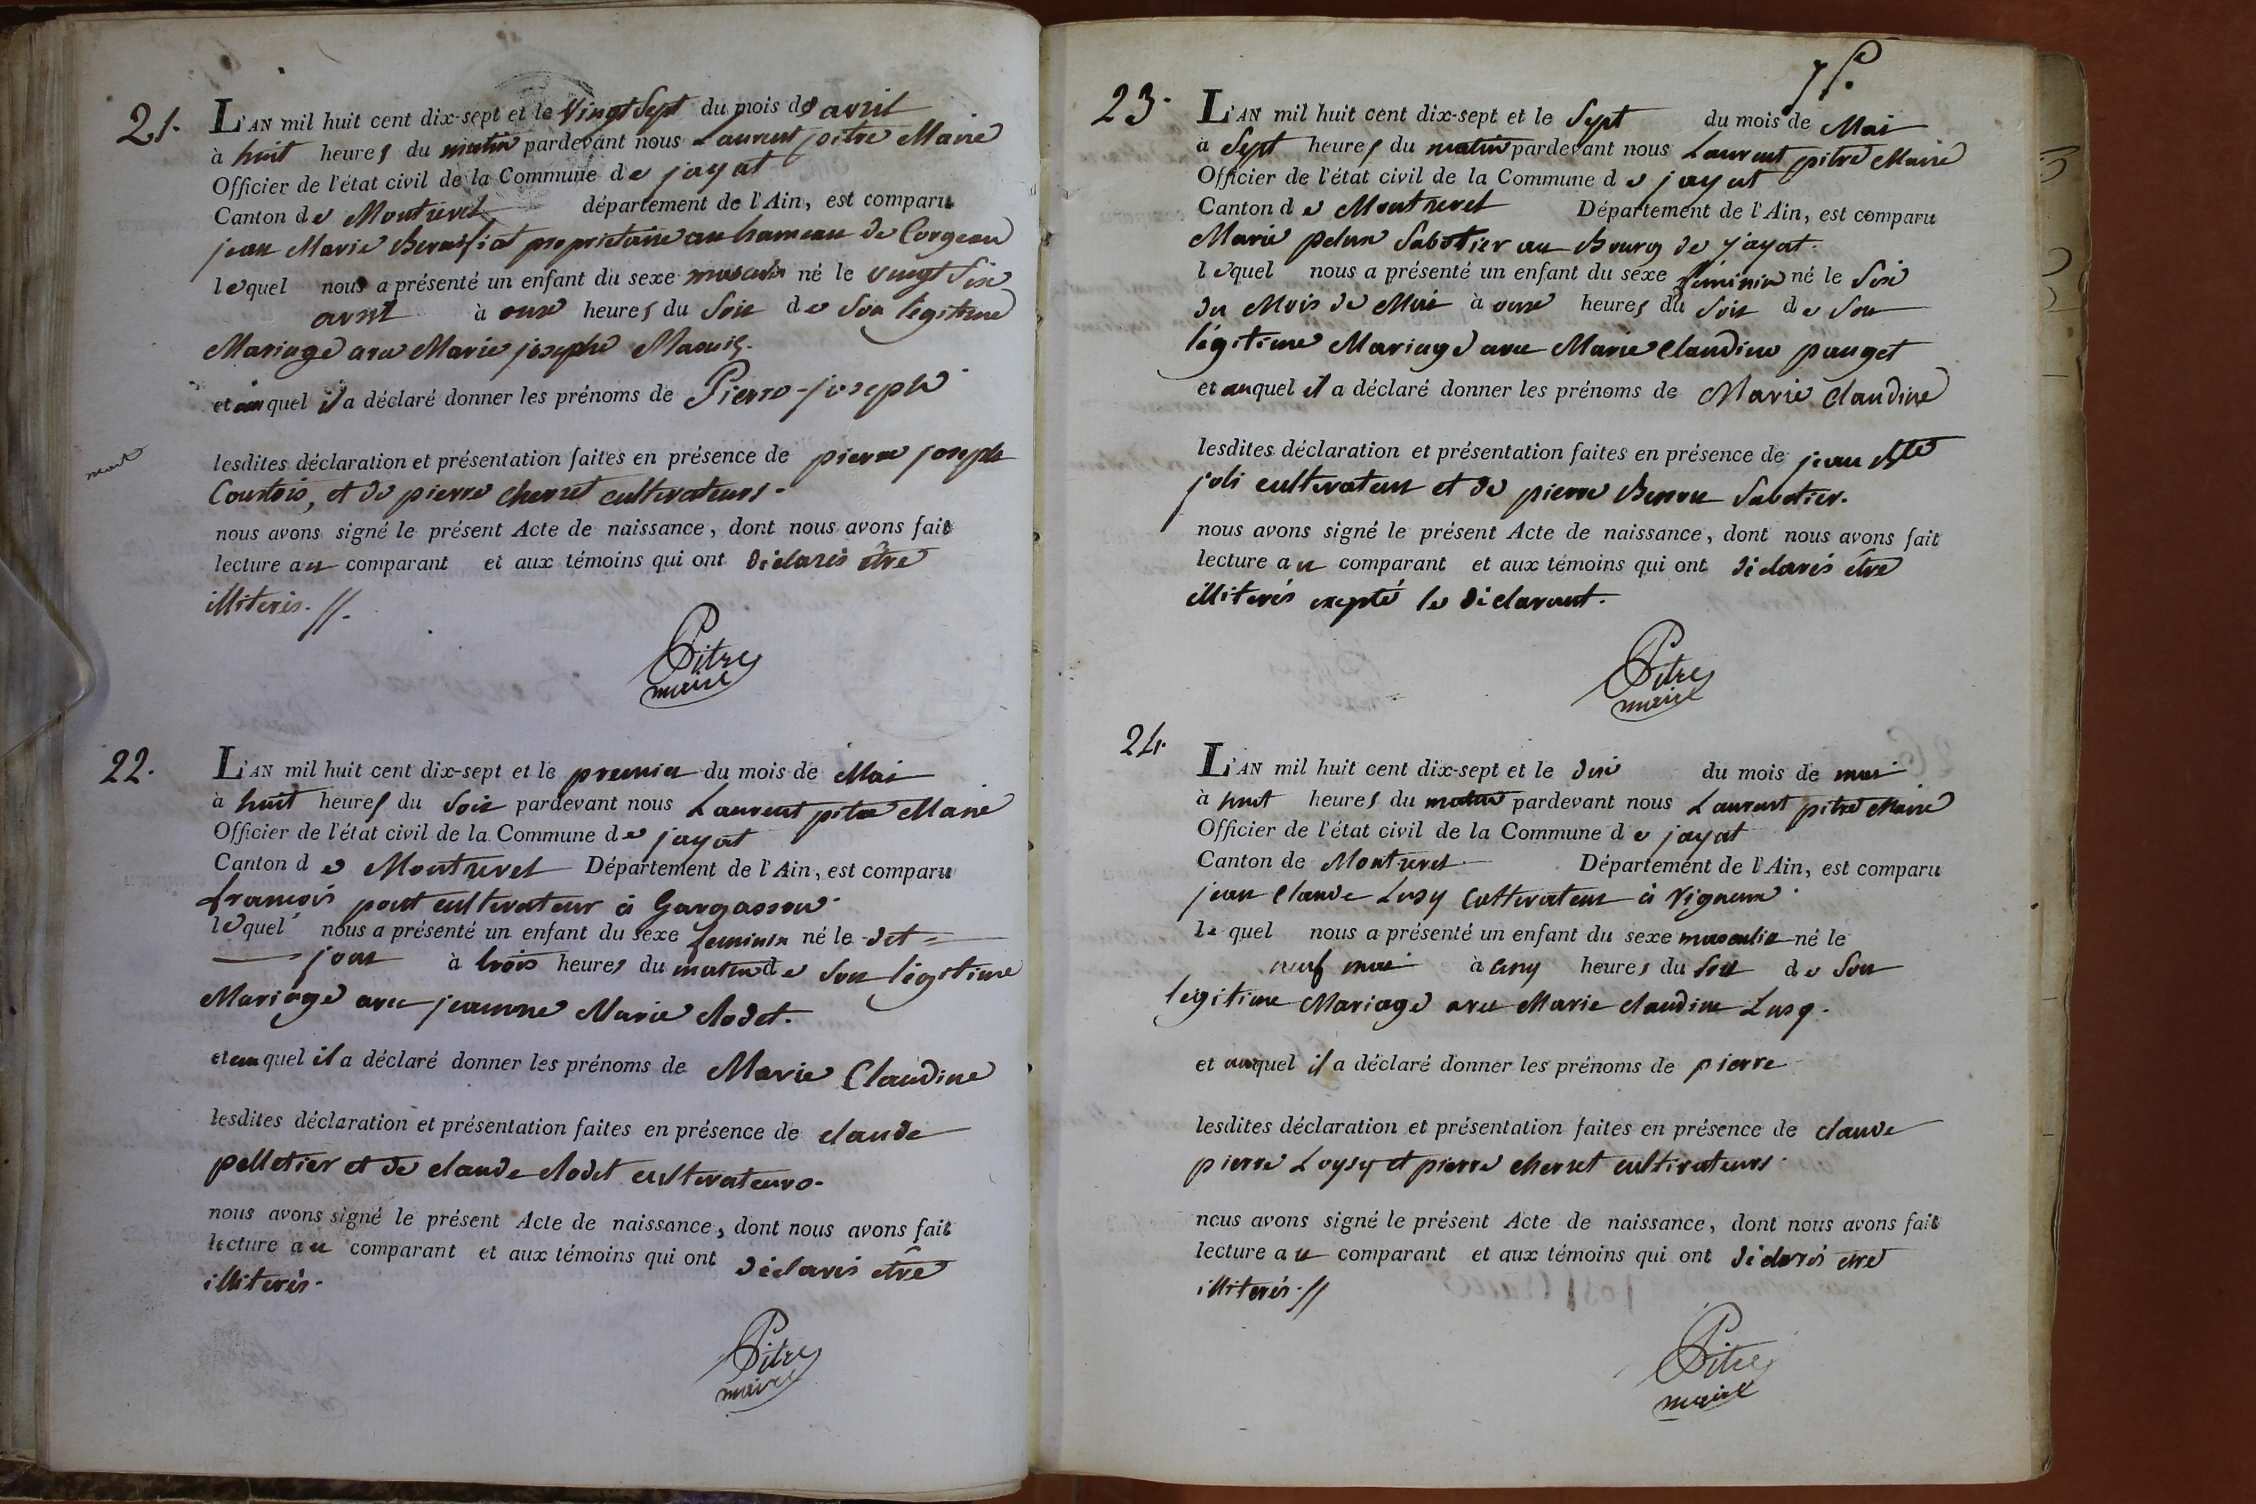 21.
L'AN mil huit cent dix-sept et le vingt Sept du mois de avril
à huit heures du matin pardevant nous Laurent pitre Maire
Officier de l'état civil de la Commune de jayat
Canton de Montrevel département de l'Ain, est comparu
jean Marie proprietaire au hameau de Corgeau
lequel nous a présenté un enfant du sexe masculin né le vingt Six
avril à onze heures du Soir de Son légitime
Mariage avec Marie josephe
et auquel il a déclaré donner les prénoms de Pierre-joseph
mort
lesdites déclaration et présentation faites en présence de pierre joseph
Courtois, et de pierre chernet cultivateurs.
nous avons signé le présent Acte de naissance, dont nous avons fait
lecture au comparant et aux témoins qui ont déclarés être
illiterés. //.
Pitre
maire
22.
L'AN mil huit cent dix-sept et le premier du mois de Mai
à huit heures du Soir pardevant nous Laurent pitre Maire
Officier de l'état civil de la Commune de jayat
Canton de Montrevel Département de l'Ain, est comparu
francois pont cultivateur à Gargassou.
lequel nous a présenté un enfant du sexe feminin né le dit =
jour à trois heures du matin de Son légitime
Mariage avec jeanne Marie clodet.
et auquel il a déclaré donner les prénoms de Marie Claudine
lesdites déclaration et présentation faites en présence de claude
pelletier et de claude clodet cultivateurs.
nous avons signé le présent Acte de naissance, dont nous avons fait
lecture au comparant et aux témoins qui ont déclarés être
illiterés.
Pitre
maire
23.
L'AN mil huit cent dix-sept et le Sept du mois de Mai
à Sept heures du matin pardevant nous Laurent pitre Maire
Officier de l'état civil de la Commune de jayat
Canton de Montrevel Département de l'Ain, est comparu
Marie pelux Sabotier au Bourg de jayat.
lequel nous a présenté un enfant du sexe féminin né le Six
du Mois de Mai à onze heures du Soir de Son
légitime Mariage avec Marie Claudine pauget
et auquel il a déclaré donner les prénoms de Marie Claudine
lesdites déclaration et présentation faites en présence de jean Bte
joli cultivateur et de pierre Sabotier.
nous avons signé le présent Acte de naissance, dont nous avons fait
lecture au comparant et aux témoins qui ont déclarés être
illiterés excepté le déclarant.
Pitre
maire
24.
L'AN mil huit cent dix-sept et le dix du mois de mai
à huit heures du matin pardevant nous Laurent pitre Maire
Officier de l'état civil de la Commune de jayat
Canton de Montrevel. Département de l'Ain, est comparu
jean Claude Lusy Cultivateur à Vigneux.
lequel nous a présenté un enfant du sexe masculin né le
neuf mai à cinq heures du Soir de Son
légitime Mariage avec Marie claudine Lusy.
et auquel il a déclaré donner les prénoms de pierre
lesdites déclaration et présentation faites en présence de claude
pierre Loysy et pierre chernet cultivateurs.
nous avons signé le présent Acte de naissance, dont nous avons fait
lecture au comparant et aux témoins qui ont déclarés être
illiterés. //
Pitre
maire